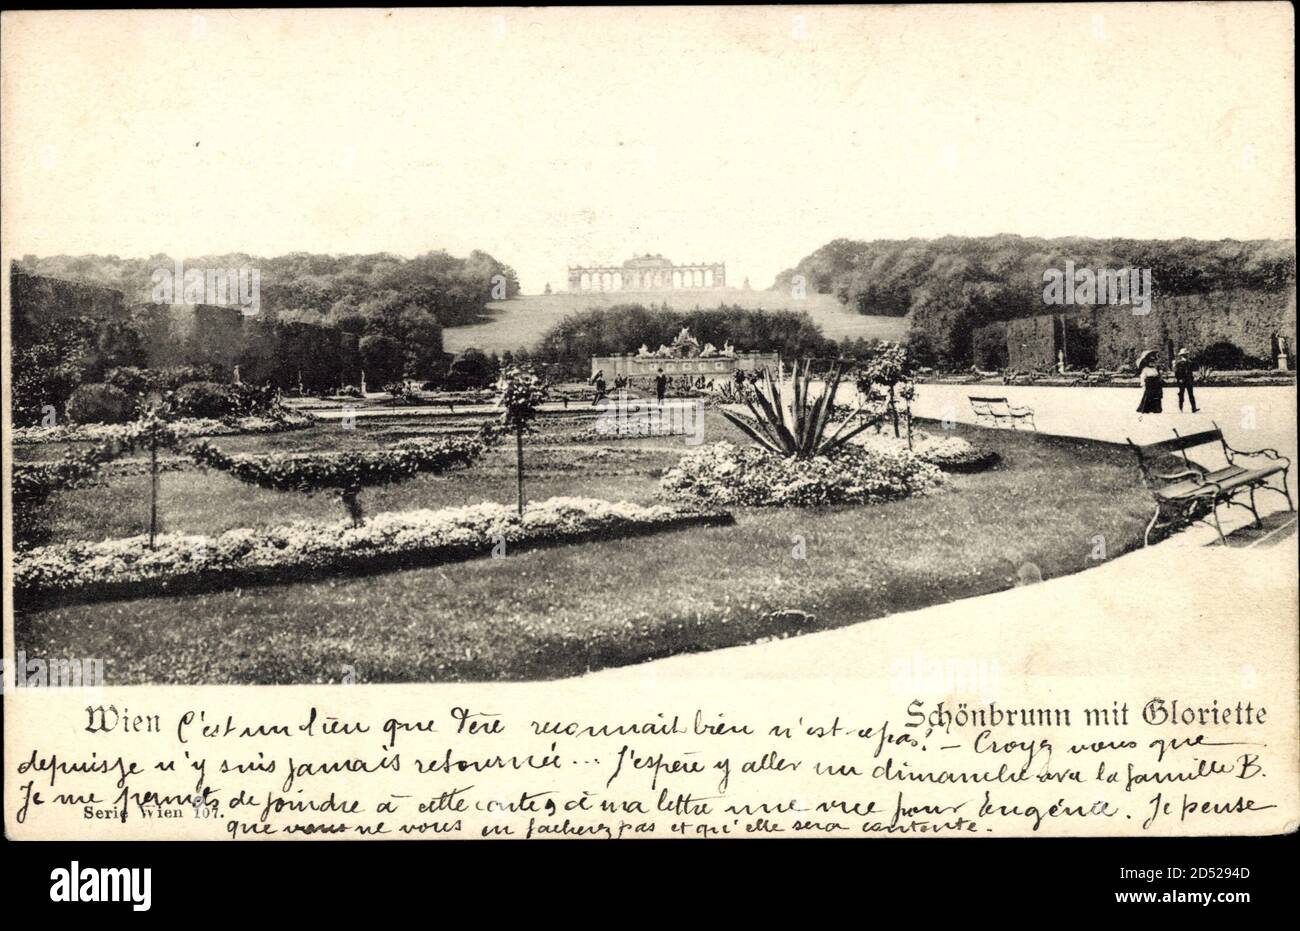 Wien
Schönbrunn mit Gloriette
C'est un lieu que Père reconnait bien n'est-ce pas! – Croyez vous que
depuis je n'y suis jamais retournée... J'espère y aller un dimanche avec la famille B.
Je me permets de joindre à cette carte, à ma lettre une vue pour Eugénie. Je pense
que vous ne vous en facherez pas et qu'elle sera contente.
Serie Wien 107.
alamy
Image ID: 2D5294D
www.alamy.com